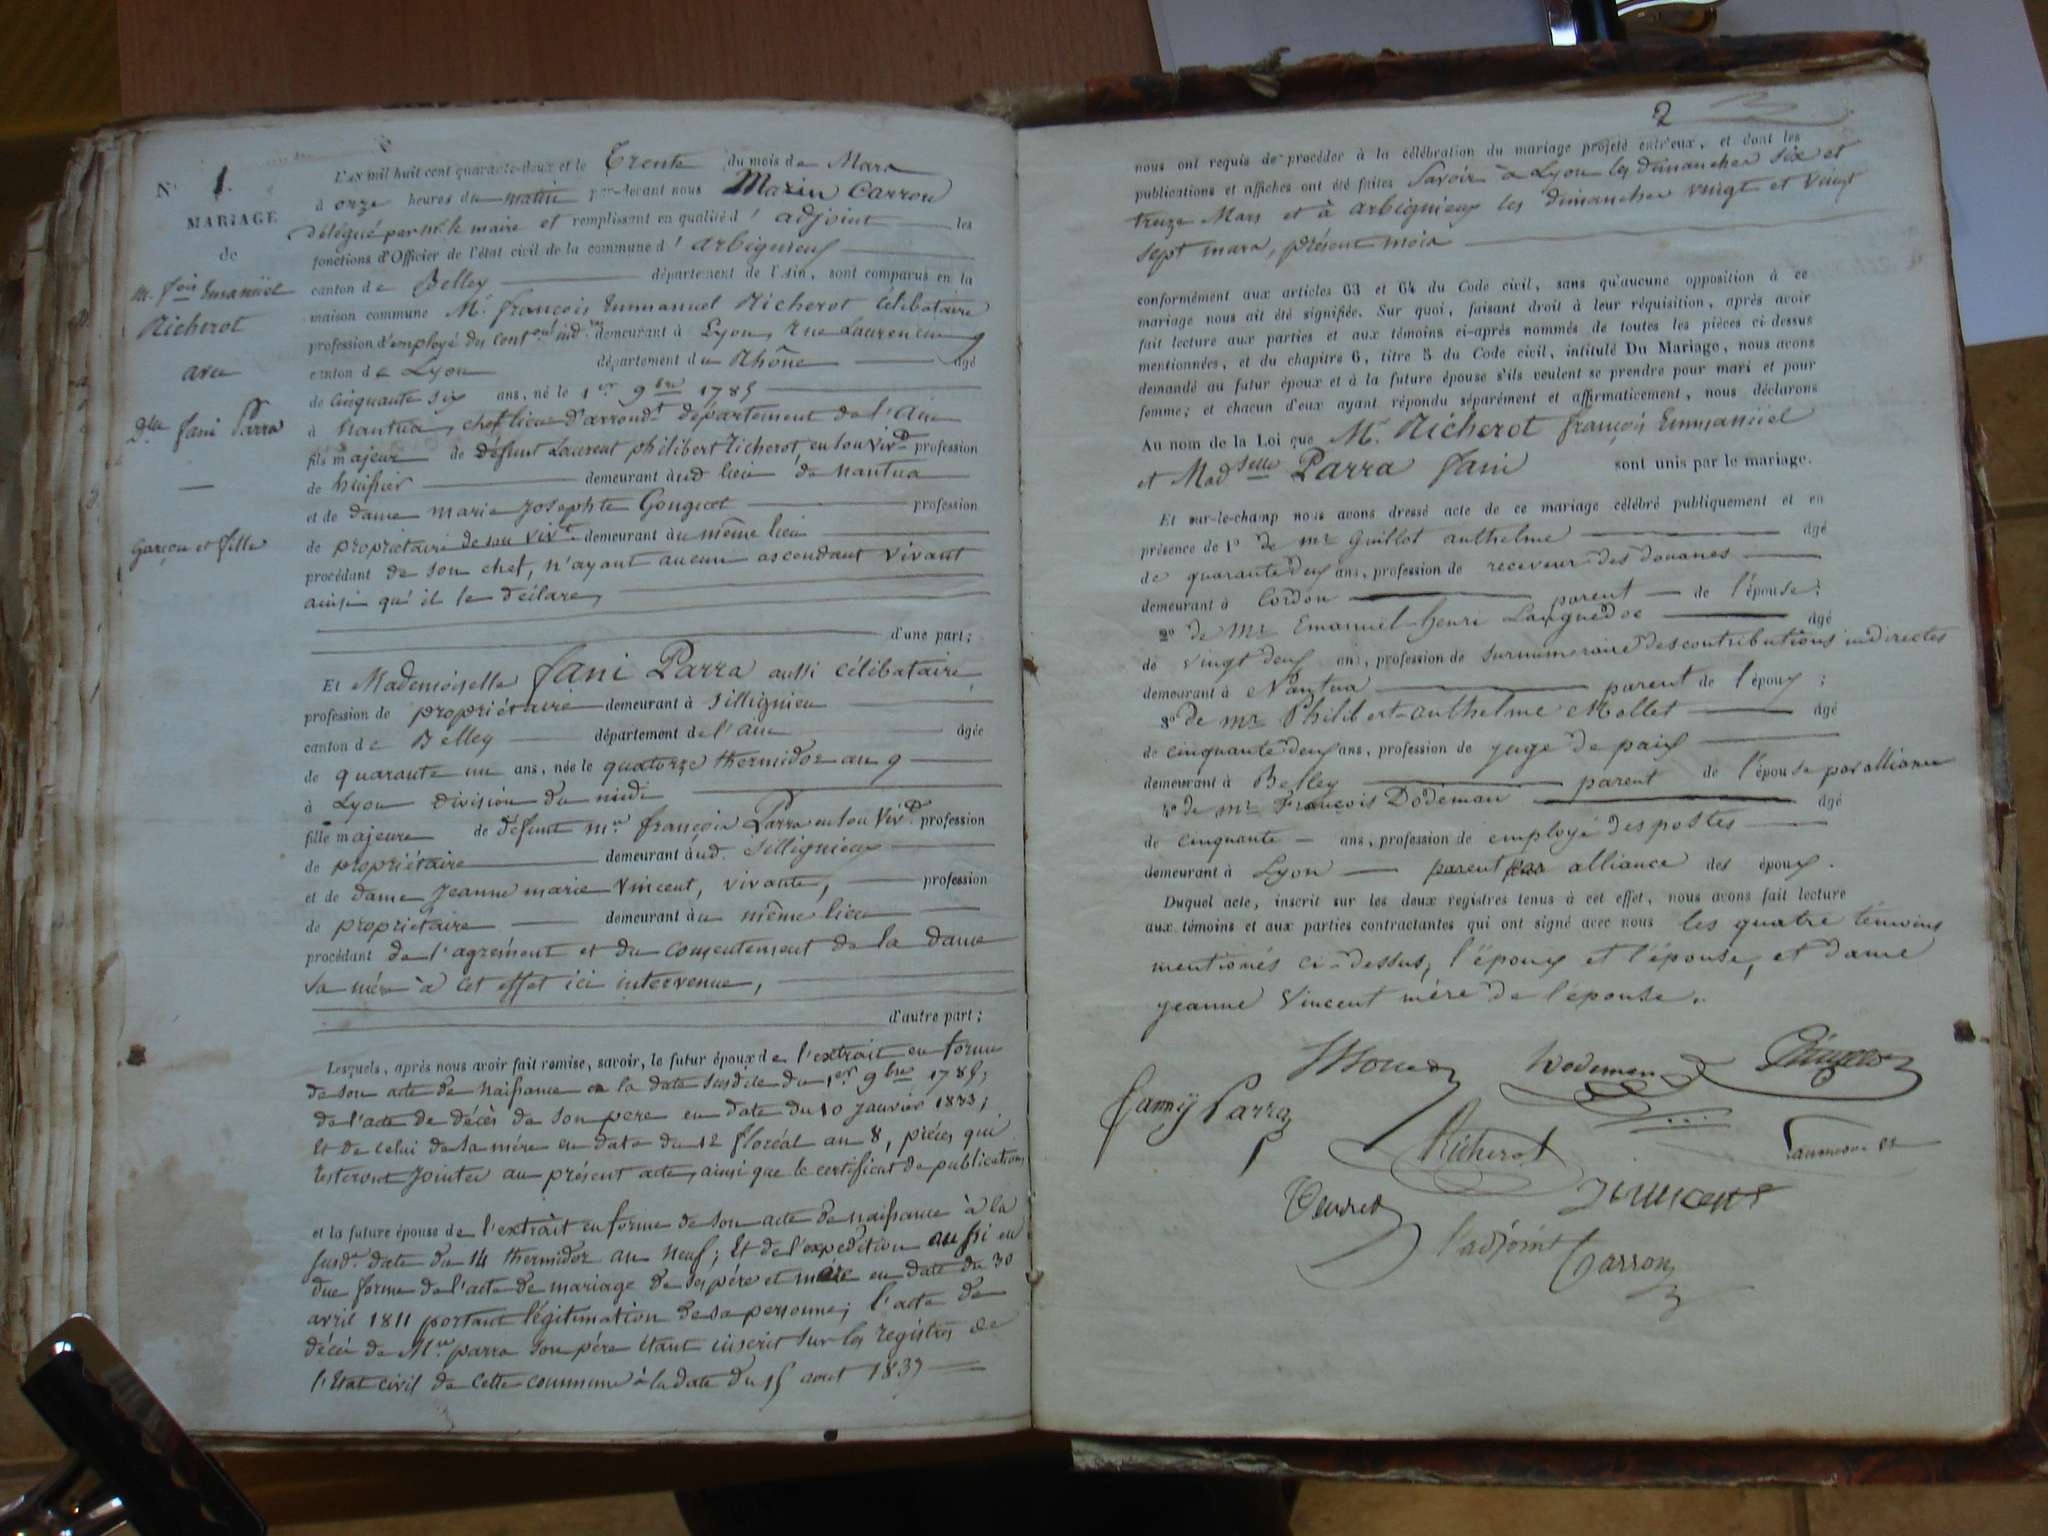 N° 1.
MARIAGE
de
M. fois Emanüel
Richerot
avec
Dlle fani Parra
Garçon et fille
L'an mil huit cent quarante-deux et le Trente du mois de Mars
à onze heures du matin par-devant nous Marin Carron
délégué par mr. le maire et remplissant en qualité d'adjoint les
fonctions d'Officier de l'état civil de la commune d'arbignieu
canton de Belley département de l'Ain, sont comparus en la
maison commune Mr. françois Emmanuel Richerot célibataire
profession d'employé des contons ind. demeurant à Lyon, rue
canton de Lyon département du Rhône âgé
de cinquante six ans, né le 1er 9bre 1785
à nantua, chef lieu d'arrondt département de l'ain
fils majeur de défunt Laurent philibert richerot, en son vivt profession
de huissier demeurant aud lieu de nantua
et de dame marie josephte Gouguet profession
de propriétaire de son vivt demeurant au même lieu
procédant de son chef, n'ayant aucun ascendant vivant
ainsi qu'il le déclare,
d'une part;
Et Mademoiselle fani Parra aussi célibataire,
profession de propriétaire demeurant à sillignieu
canton de Belley département de l'ain âgée
de quarante un ans, née le quatorze thermidor an 9
à Lyon division du midi
fille majeure de défunt mr. françois Parra en son vivt profession
de propriétaire demeurant aud. sillignieu
et de dame jeanne marie Vincent, vivante, profession
de propriétaire demeurant au même lieu
procédant de l'agrément et du consentement de la dame
sa mère à cet effet ici intervenue,
d'autre part;
Lesquels, après nous avoir fait remise, savoir, le futur époux de l'extrait en forme
de son acte de naissance à la date susdite du 1er 9bre 1785;
de l'acte de décès de son pere en date du 10 janvier 1833;
Et de celui de sa mère en date du 12 floréal an 8, pièces qui
resteront jointes au présent acte, ainsi que le certificat de publication
et la future épouse de l'extrait en forme de son acte de naissance à la
susd. date du 14 thermidor an neuf; Et de l'expédition aussi en
due forme de l'acte de mariage de ses père et mère en date du 30
avril 1811 portant légitimation de sa personne; l'acte de
décès de Mr parra son père étant inscrit sur les registres de
l'Etat civil de cette commune à la date du 15 aout 1839
2
nous ont requis de procéder à la célébration du mariage projeté entr'eux, et dont les
publications et affiches ont été faites Savoir à Lyon les dimanches six et
treize Mars et à arbignieu les dimanches vingt et vingt
sept mars, présent mois
conformément aux articles 63 et 64 du Code civil, sans qu'aucune opposition à ce
mariage nous ait été signifiée. Sur quoi, faisant droit à leur réquisition, après avoir
fait lecture aux parties et aux témoins ci-après nommés de toutes les pièces ci-dessus
mentionnées, et du chapitre 6, titre 5 du Code civil, intitulé Du Mariage, nous avons
demandé au futur époux et à la future épouse s'ils veulent se prendre pour mari et pour
femme; et chacun d'eux ayant répondu séparément et affirmativement, nous déclarons
Au nom de la Loi que Mr. Richerot françois Emmanüel
et Madselle Parra fani sont unis par le mariage.
Et sur-le-champ nous avons dressé acte de ce mariage célébré publiquement et en
présence de 1° de mr Guillot anthelme âgé
de quarante deux ans, profession de receveur des douanes
demeurant à Cordon parent de l'épouse;
2° de Mr Emanuel-henri Languedoc âgé
de vingt deux ans, profession de surnuméraire des contributions indirectes
demeurant à Nantua parent de l'époux;
3° de mr Philibert-anthelme Mollet âgé
de cinquante deux ans, profession de juge de paix
demeurant à Belley parent de l'épouse par alliance
4° de mr François Dodeman âgé
de cinquante ans, profession de employé des postes
demeurant à Lyon parent par alliance des époux.
Duquel acte, inscrit sur les deux registres tenus à cet effet, nous avons fait lecture
aux témoins et aux parties contractantes qui ont signé avec nous les quatre témoins
mentionés ci-dessus, l'époux et l'épouse, et dame
jeanne Vincent mère de l'épouse.
Dodeman
fanny Parra
Richerot
J Vincent
l'adjoint Carron